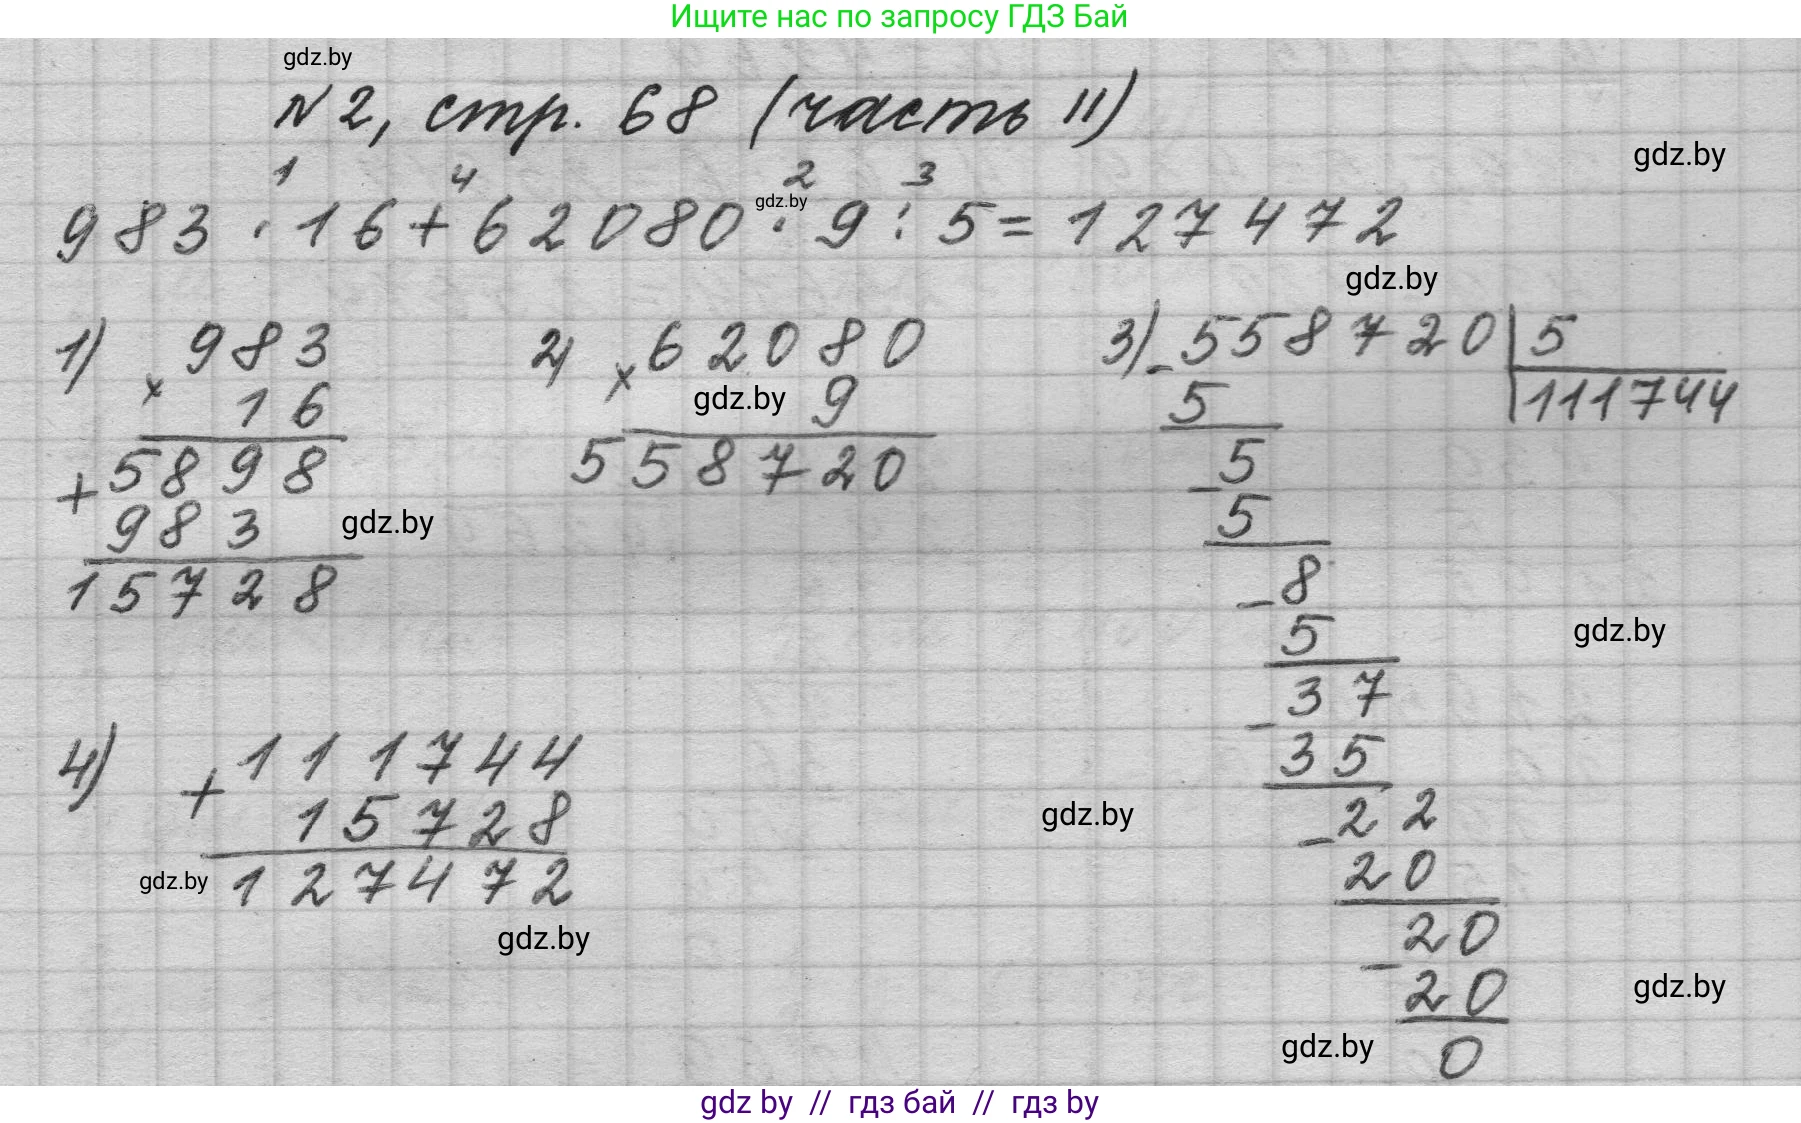 Ищите нас по запросу ГДЗ Бай
gdz.by
№2, стр. 68 (часть II)
gdz.by
1 4 2 3
983 · 16 + 62080 · 9 : 5 = 127472
gdz.by
gdz.by
1) × 983
16
+ 5898
983
15728
gdz.by
2) × 62080
9
558720
gdz.by
3) - 558720 | 5
5 111744
- 5
5
- 8
5
- 37
35
- 22
20
- 20
20
0
gdz.by
gdz.by
4) + 111744
15728
127472
gdz.by
gdz.by
gdz.by
gdz.by
gdz by // гдз бай // гдз by